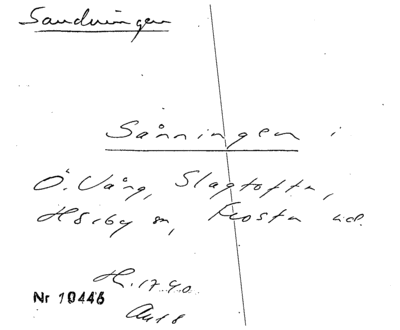 Sandningen
Sånningen i
Ö. Vång, Slagtofta,
Hörby sn, Frosta hd.
H. 1740.
Nr 10446